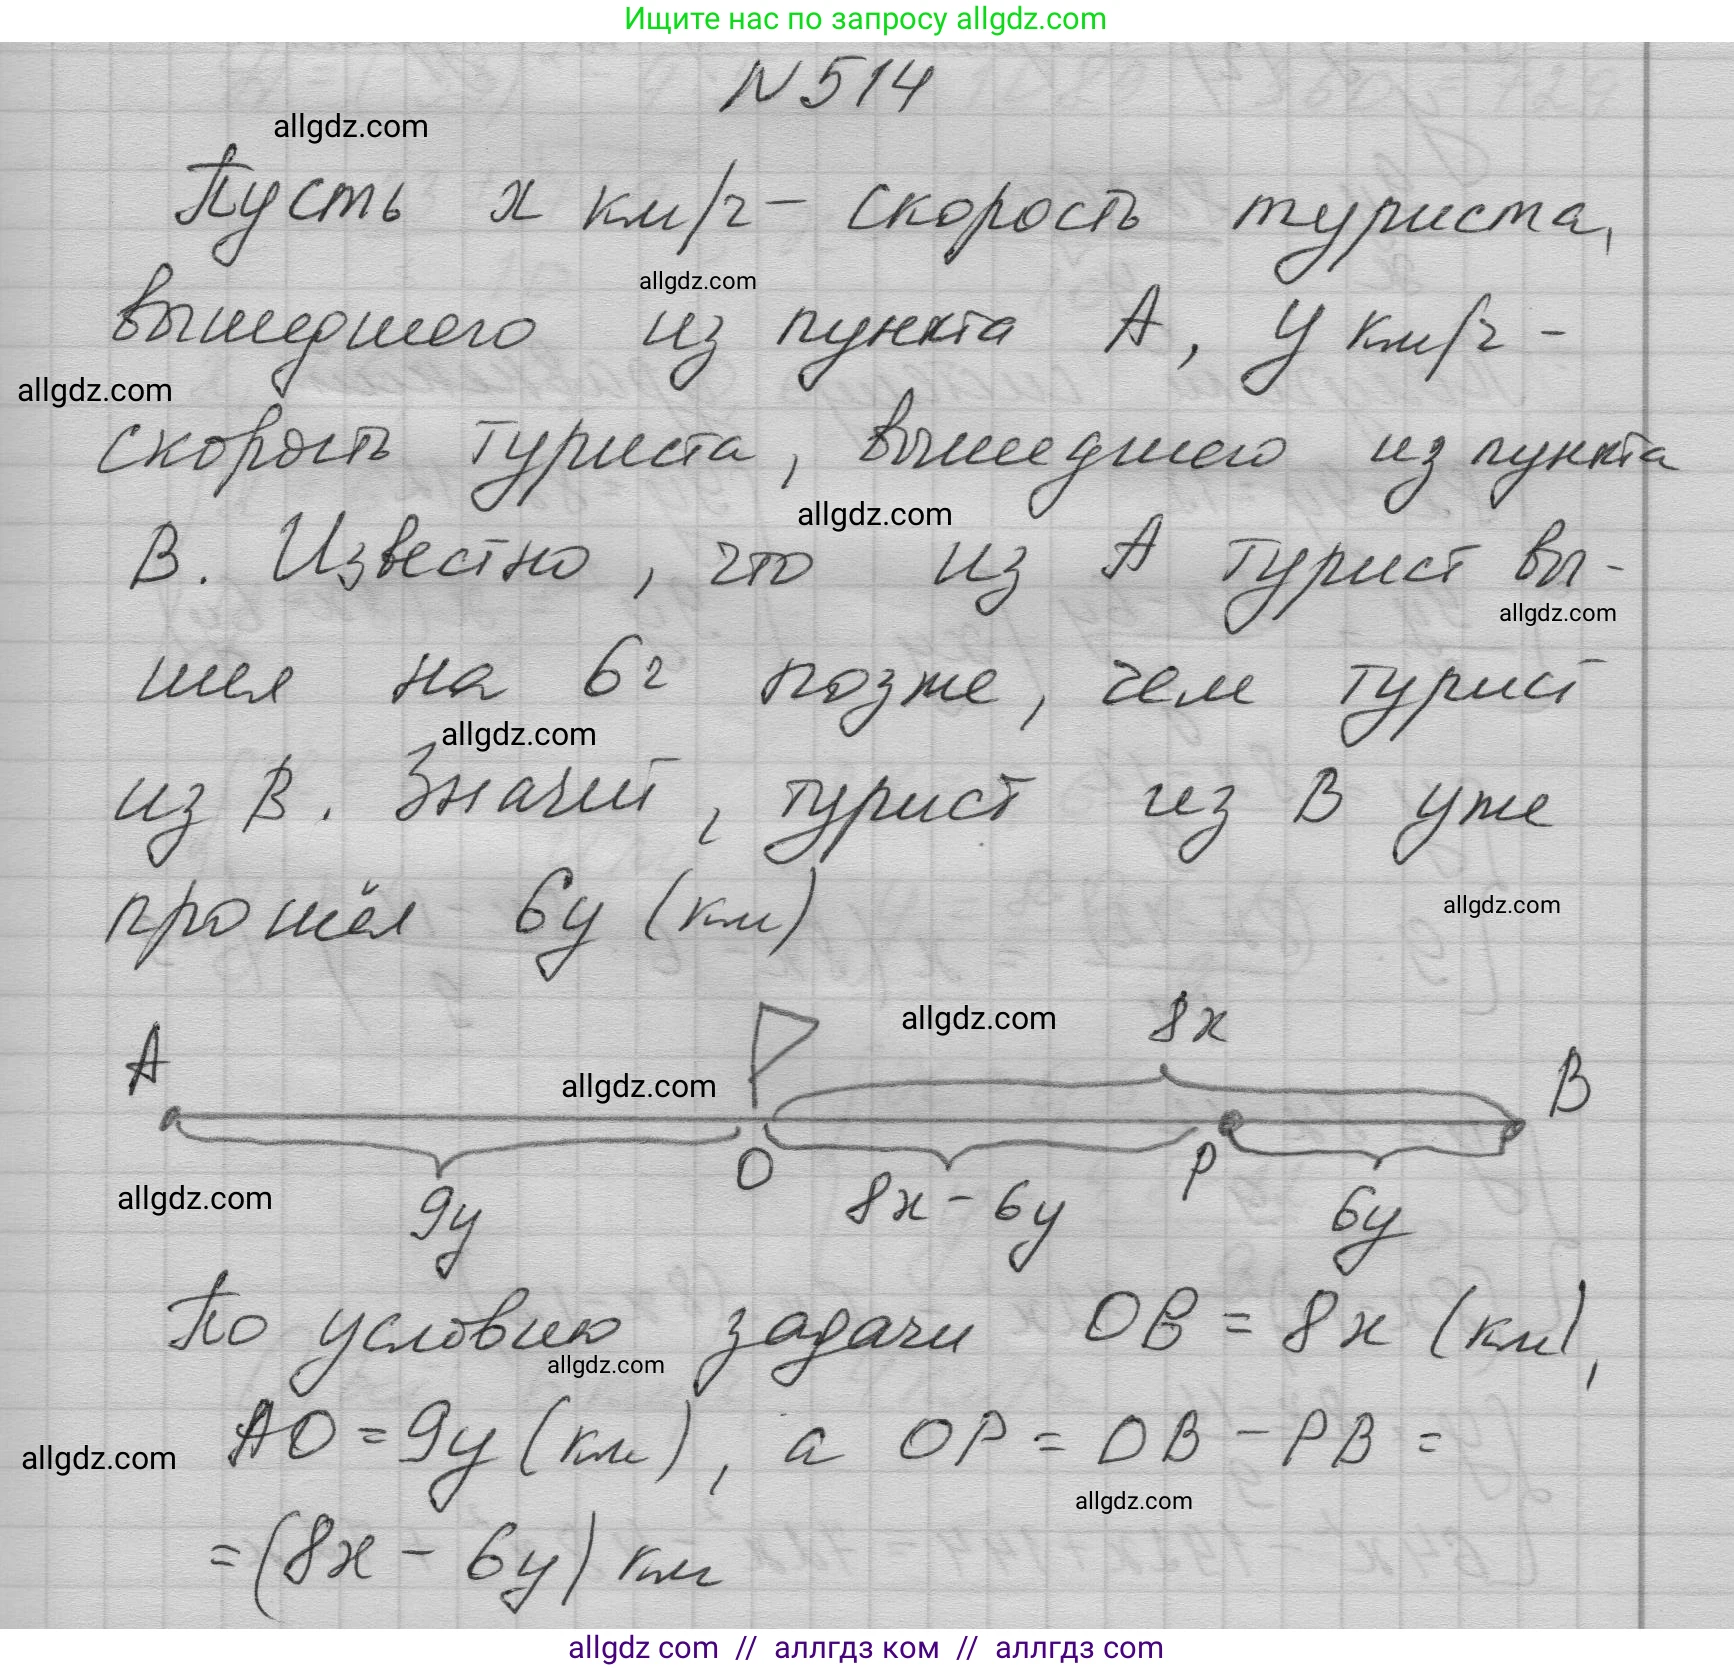 Ищите нас по запросу allgdz.com
N 514
allgdz.com
Пусть x км/ч - скорость туриста,
allgdz.com
вышедшего из пункта А, y км/ч -
allgdz.com
скорость туриста, вышедшего из пункта
allgdz.com
В. Известно, что из А турист вы-
allgdz.com
шел на 6ч позже, чем турист
allgdz.com
из В. Значит, турист из В уже
прошёл 6y (км)
allgdz.com
allgdz.com
8x
A
B
allgdz.com
O
P
allgdz.com
9y
8x - 6y
6y
По условию задачи OB = 8x (км),
allgdz.com
AO = 9y (км), а OP = OB - PB =
allgdz.com
allgdz.com
= (8x - 6y) км
allgdz com // аллгдз ком // аллгдз com